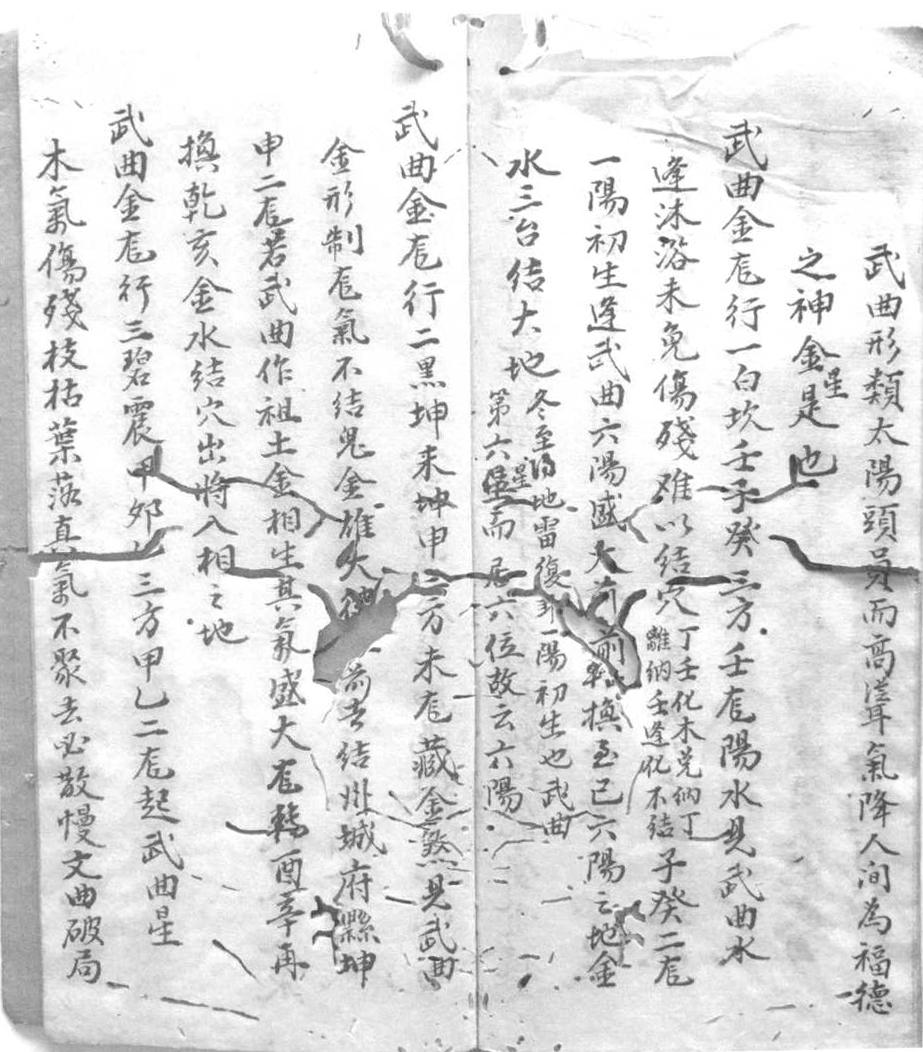 武曲形類太陽頭員而高聳氣降人间為福德
之神金星是也
武曲金龙行一白坎壬子癸三方壬龙陽水見武曲水
逢沐浴未免傷殘难以结穴丁壬化木兑纳丁
離納壬逢化不结子癸二龙
一陽初生逢武曲六陽盛大前轉换至巳六陽之地金
水三台结大地冬至
地雷復卦一陽初生也武曲
第六星而居六位故云六陽
武曲金龙行二黑坤未坤申三方未龙藏金煞見武曲
金形制龙氣不结鬼金雄大
前去结州城府縣坤
申二龙若武曲作祖土金相生其氣盛大龙轉酉辛再
换乾亥金水结穴出將入相之地
武曲金龙行三碧震甲卯乙三方甲乙二龙起武曲星
木氣傷殘枝枯葉落真氣不聚去必散慢文曲破局